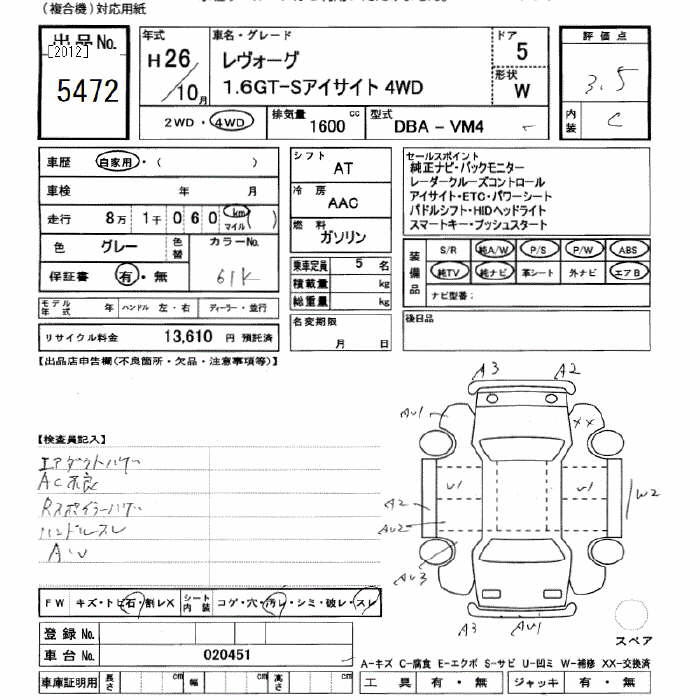 (複合機)対応用紙
出品No.
[2012]
5472
年式
H26/10月
車名・グレード
レヴォーグ
1.6GT-Sアイサイト 4WD
ドア
5
形状
W
評価点
3.5
内装
C
2WD・4WD
排気量
1600 cc
型式
DBA - VM4
車歴 自家用・( )
車検 年 月
走行 8万 1千 060 km マイル ( )
色 グレー 色替 カラーNo.
61K
保証書 有・無
モデル年式 年 ハンドル 左・右 ディーラー・並行
リサイクル料金 13,610 円 預託済
シフト
AT
冷房
AAC
燃料
ガソリン
乗車定員 5 名
積載量 kg
総重量 kg
名変期限
月 日
セールスポイント
純正ナビ・バックモニター
レーダークルーズコントロール
アイサイト・ETC・パワーシート
パドルシフト・HIDヘッドライト
スマートキー・プッシュスタート
装備品
S/R 純A/W P/S P/W ABS
純TV 純ナビ 革シート 外ナビ エアB
ナビ型番:
後日品
【出品店申告欄(不良箇所・欠品・注意事項等)】
【検査員記入】
エアダクトハガレ
AC不良
Rスポイラーハガレ
ハンドルスレ
AW
A3 A2
AU1 XX
U1 U1
A2 W2
AU2
AU3
A3 AU1
スペア
FW キズ・トビ石・割レX シート内装 コゲ・穴・汚レ・シミ・破レ・スレ
登録No.
車台No. 020451
車庫証明用 長さ cm 幅 cm 高さ cm
A-キズ C-腐食 E-エクボ S-サビ U-凹ミ W-補修 XX-交換済
工具 有・無 ジャッキ 有・無